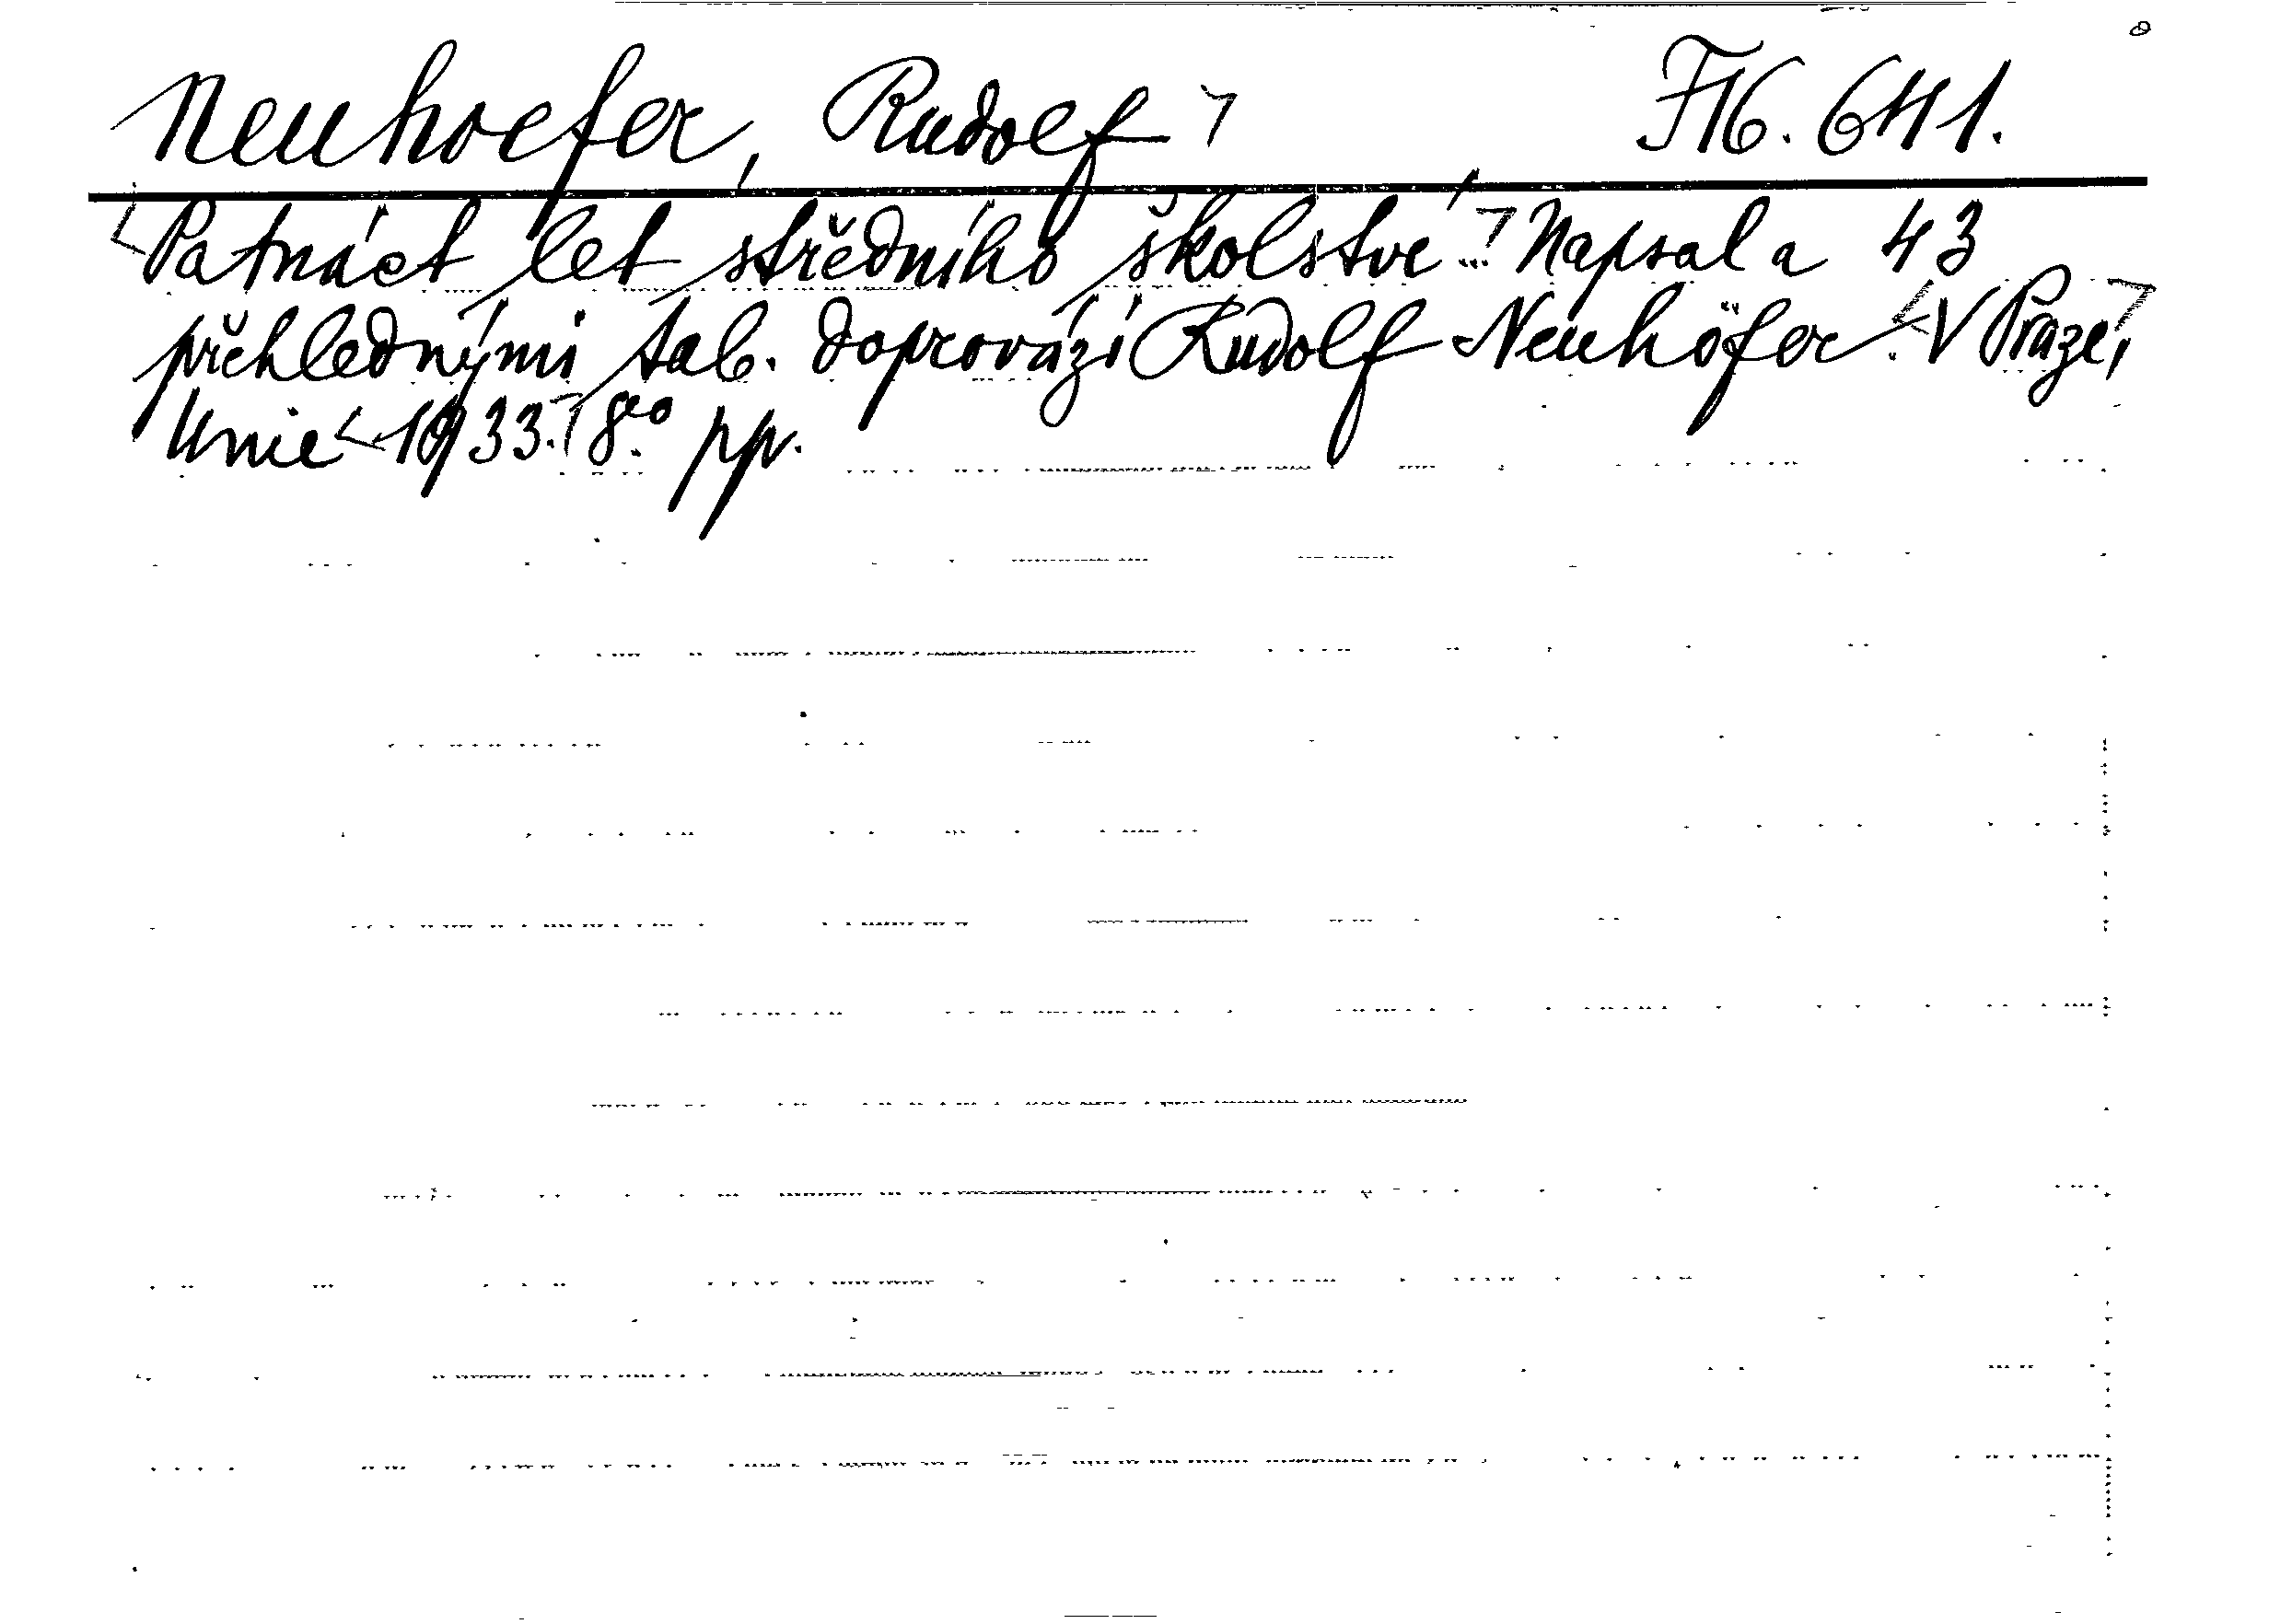 Neuhoefer, Rudolf F16.641.
Patnáct let středního školství... Napsal a 43
přehlednými tab. doprovází Rudolf Neuhöfer. V Praze,
Unie 1933. 8.° pp.